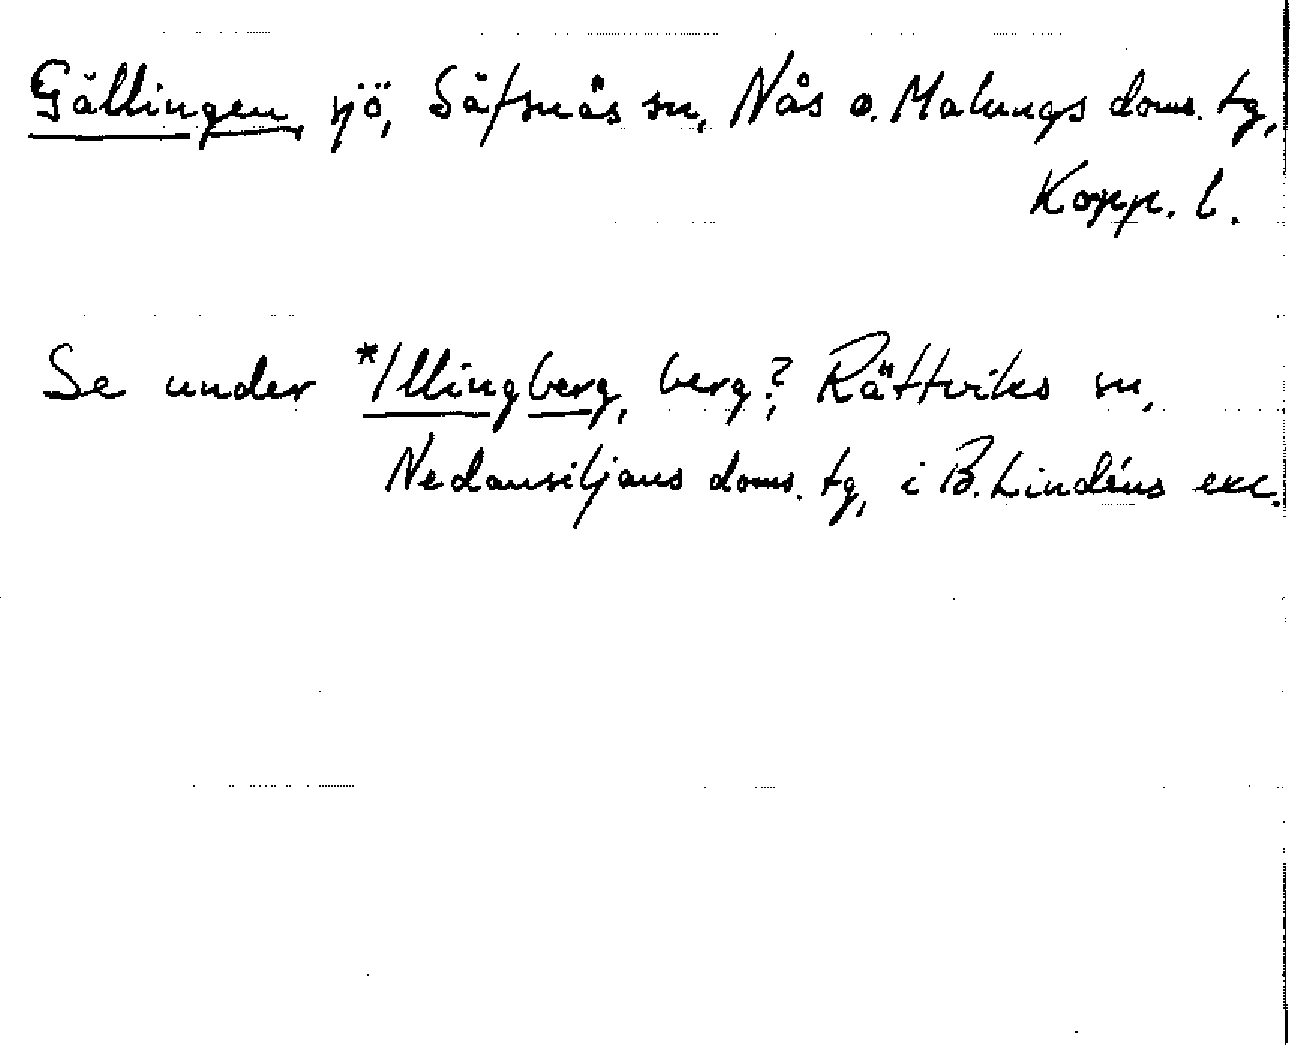 Gällingen, sjö, Säfsnäs sn, Nås o. Malungs doms. tg,
Kopp. l.
Se under *Illingberg, berg?, Rättviks sn,
Nedansiljans doms. tg, i B. Lindéns exc.